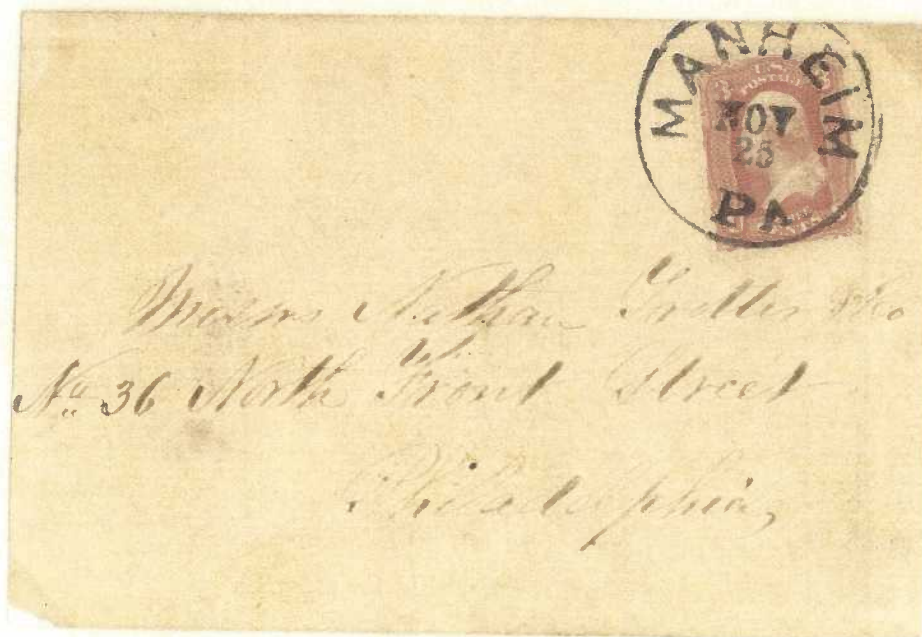 MANHEIM
NOV
25
PA
U.S.
POSTAGE
Messrs Nathan Trotter & Co
No. 36 North Front Street
Philadelphia,